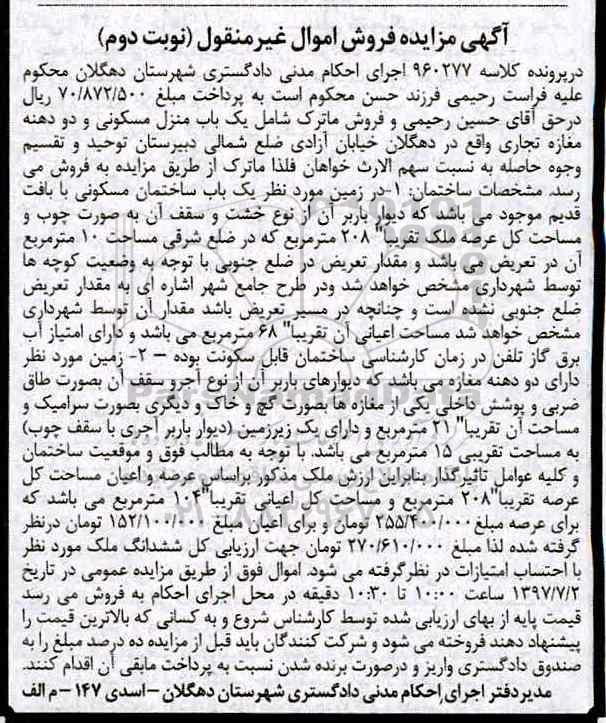 آگهی مزایده فروش اموال غیرمنقول (نوبت دوم)
درپرونده کلاسه ۹۶۰۲۷۷ اجرای احکام مدنی دادگستری شهرستان دهگلان محکوم
علیه فراست رحیمی فرزند حسن محکوم است به پرداخت مبلغ ۷۰/۸۷۲/۵۰۰ ریال
درحق آقای حسین رحیمی و فروش ماترک شامل یک باب منزل مسکونی و دو دهنه
مغازه تجاری واقع در دهگلان خیابان آزادی ضلع شمالی دبیرستان توحید و تقسیم
وجوه حاصله به نسبت سهم الارث خواهان فلذا ماترک از طریق مزایده به فروش می
رسد. مشخصات ساختمان: ۱-در زمین مورد نظر یک باب ساختمان مسکونی با بافت
قدیم موجود می باشد که دیوار باربر آن از نوع خشت و سقف آن به صورت چوب و
مساحت کل عرصه ملک تقریبا" ۲۰۸ مترمربع که در ضلع شرقی مساحت ۱۰ مترمربع
آن در تعریض می باشد و مقدار تعریض در ضلع جنوبی با توجه به وضعیت کوچه ها
توسط شهرداری مشخص خواهد شد ودر طرح جامع شهر اشاره ای به مقدار تعریض
ضلع جنوبی نشده است و چنانچه در مسیر تعریض باشد مقدار آن توسط شهرداری
مشخص خواهد شد مساحت اعیانی آن تقریبا" ۶۸ مترمربع می باشد و دارای امتیاز آب
برق گاز تلفن در زمان کارشناسی ساختمان قابل سکونت بوده – ۲- زمین مورد نظر
دارای دو دهنه مغازه می باشد که دیوارهای باربر آن از نوع آجرو سقف آن بصورت طاق
ضربی و پوشش داخلی یکی از مغازه ها بصورت گچ و خاک و دیگری بصورت سرامیک و
مساحت آن تقریبا" ۲۱ مترمربع و دارای یک زیرزمین (دیوار باربر آجری با سقف چوب)
به مساحت تقریبی ۱۵ مترمربع می باشد. با توجه به مطالب فوق و موقعیت ساختمان
و کلیه عوامل تاثیرگذار بنابراین ارزش ملک مذکور براساس عرصه و اعیان مساحت کل
عرصه تقریبا"۲۰۸ مترمربع و مساحت کل اعیانی تقریبا"۱۰۴ مترمربع می باشد که
برای عرصه مبلغ ۲۵۵/۴۰۰/۰۰۰ تومان و برای اعیان مبلغ ۱۵۲/۱۰۰/۰۰۰ تومان درنظر
گرفته شده لذا مبلغ ۲۷۰/۶۱۰/۰۰۰ تومان جهت ارزیابی کل ششدانگ ملک مورد نظر
با احتساب امتیازات در نظرگرفته می شود. اموال فوق از طریق مزایده عمومی در تاریخ
۱۳۹۷/۷/۲ ساعت ۱۰:۰۰ تا ۱۰:۳۰ دقیقه در محل اجرای احکام به فروش می رسد
قیمت پایه از بهای ارزیابی شده توسط کارشناس شروع و به کسانی که بالاترین قیمت را
پیشنهاد دهند فروخته می شود و شرکت کنندگان باید قبل از مزایده ده درصد مبلغ را به
صندوق دادگستری واریز و درصورت برنده شدن نسبت به پرداخت مابقی آن اقدام کنند.
مدیردفتر اجرای احکام مدنی دادگستری شهرستان دهگلان –اسدی ۱۴۷ –م الف
ParsNamadData